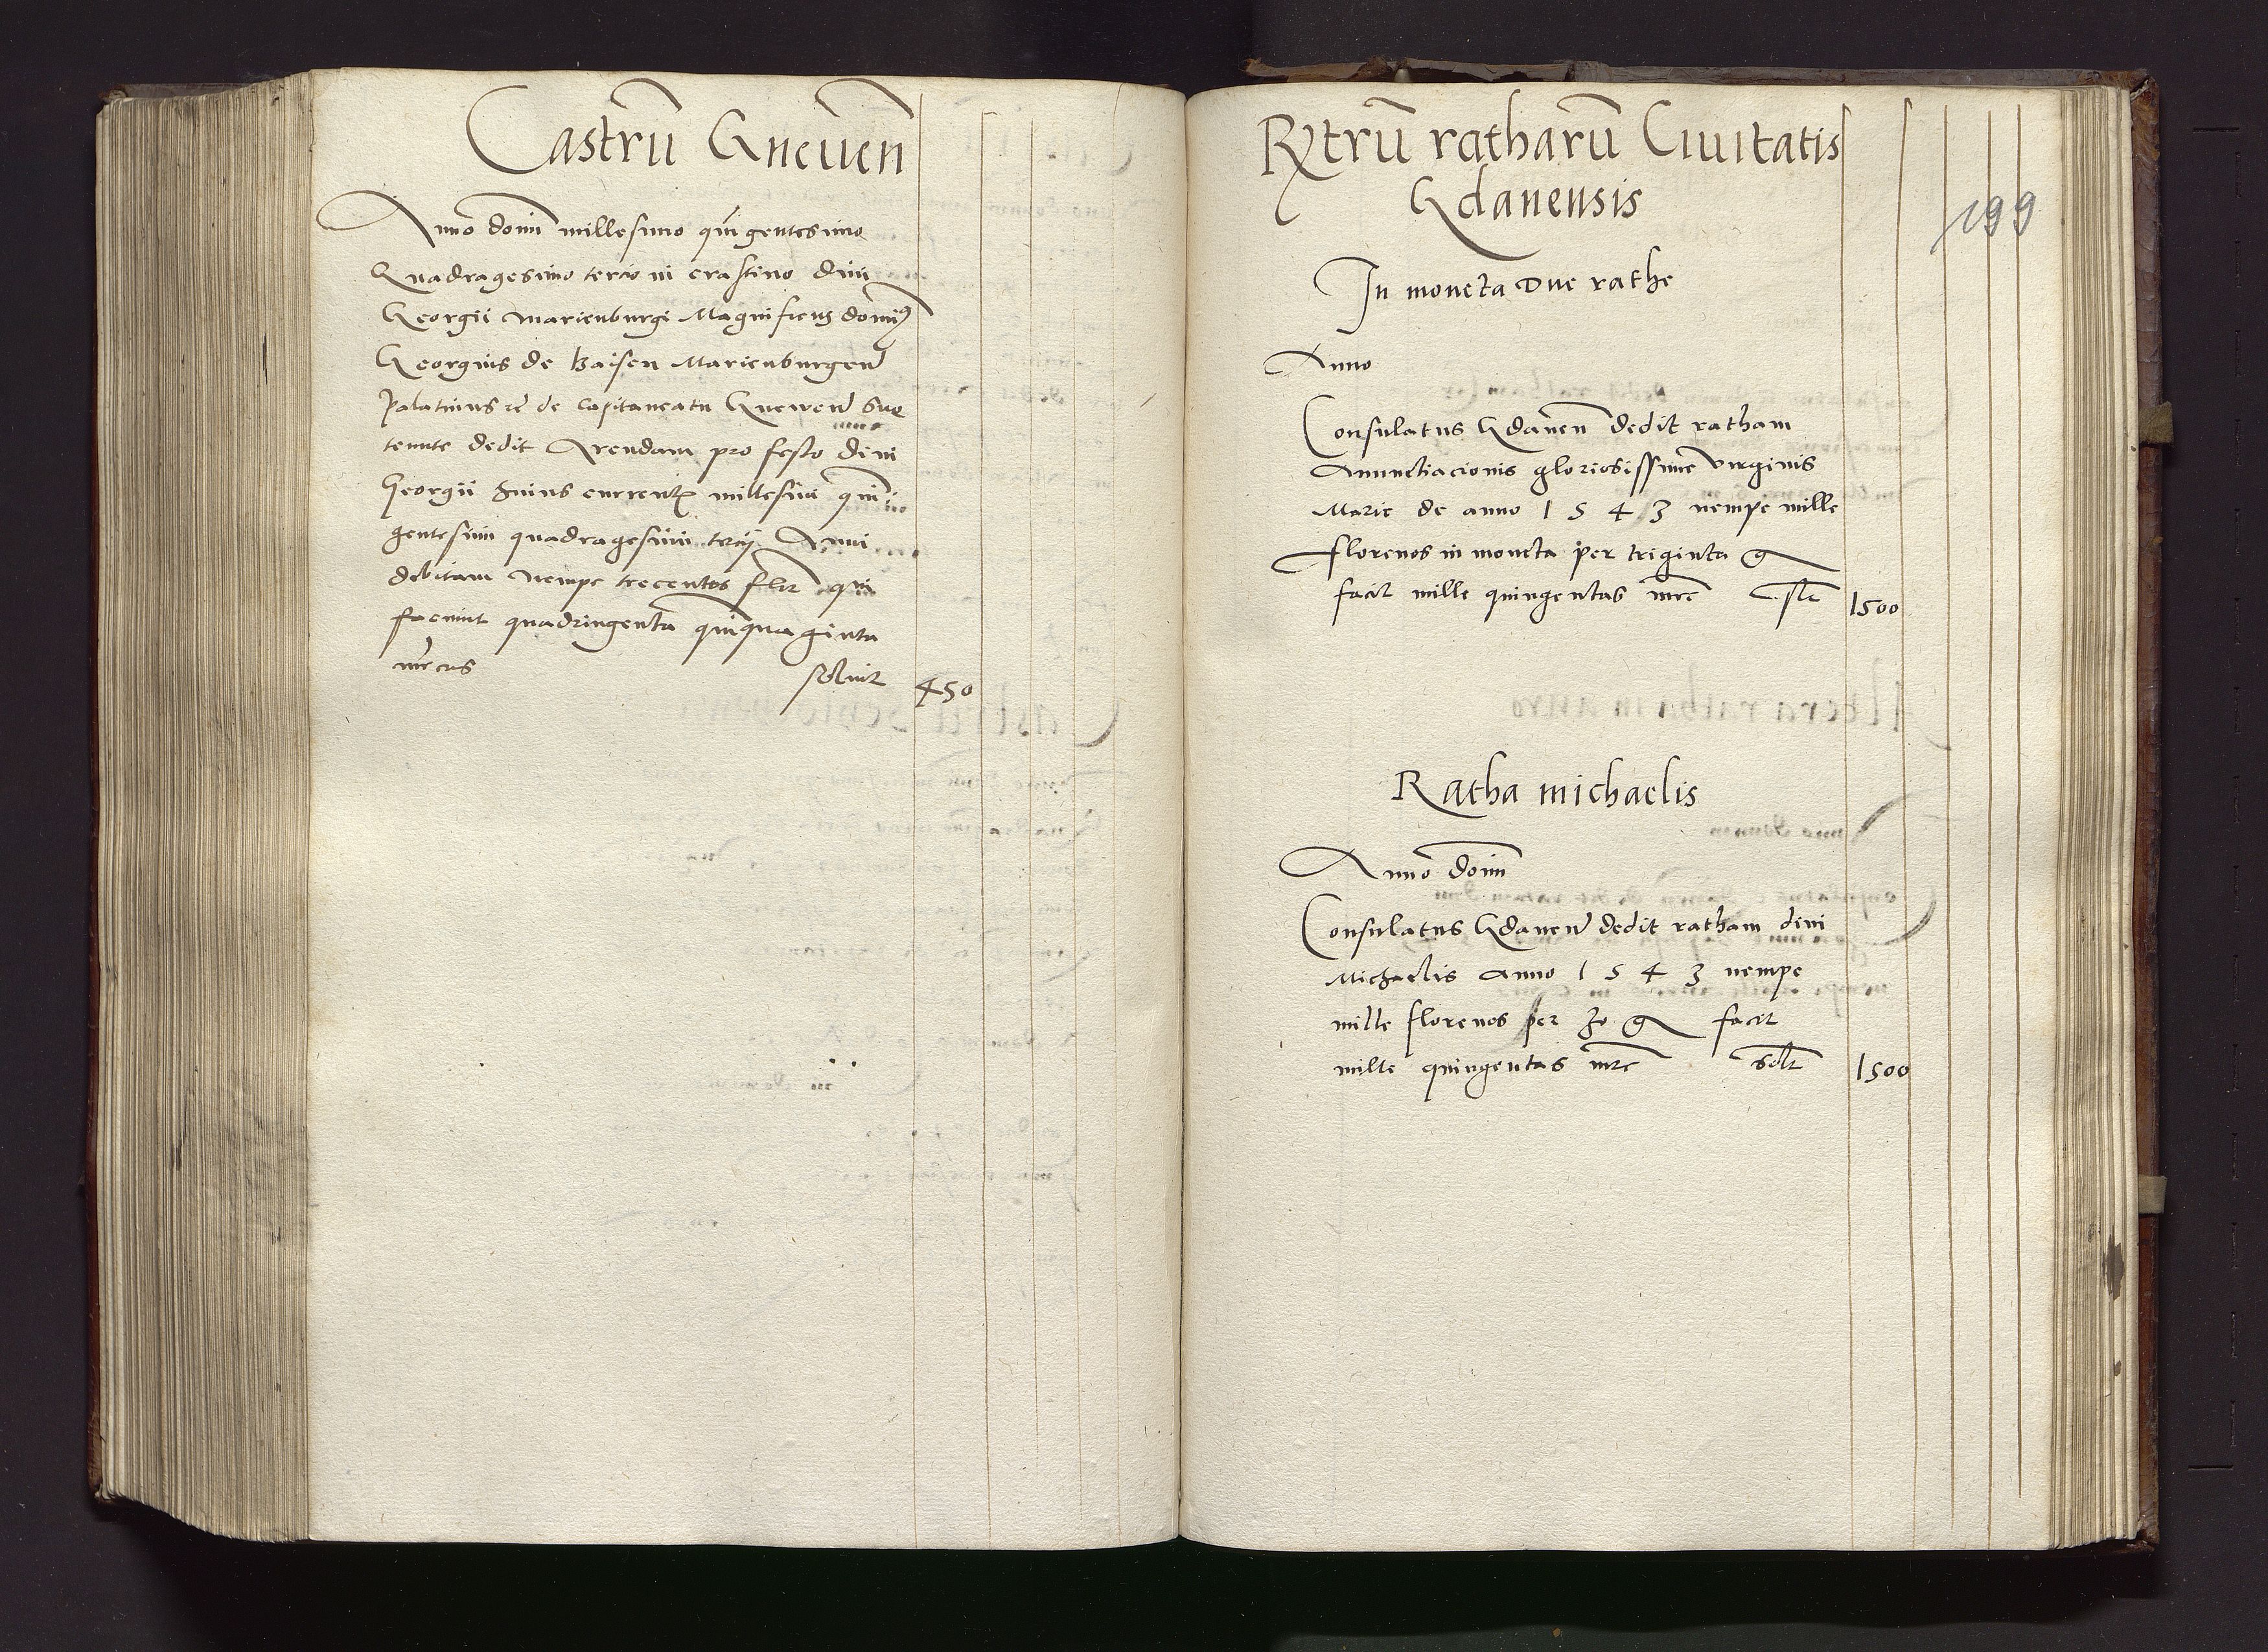 Castrū Gneuen̄
Anno domī millesimo quīgentesimo
Quadragesimo tercio in crastino diui
Georgii Marienburgi Magnificus domīꝰ
Georgius de Baisen Marienburgen̄
Palatinus de Capitaneatu Gneuen̄ sue
tenute dedit Arendam pro festo diui
Georgii huius currentꝭ millesimi quīn
gentesimi quadragesimi tercij Anni
debitam nempe trecentos flor̄ qui
faciunt quadringenta quīquaginta
mrcas soluit 450
Rꝫtrū ratharū Ciuitatis
Gdanensis
199
In moneta due rathe
Anno
Consulatus Gdanen̄ dedit ratham
Anunctiacionis gloriosissime virginis
Marie de anno 1 5 4 3 nempe mille
florenos in moneta per triginta g
facit mille quingentas mrc̄ 1500
Ratha michaelis
Anno domī
Consulatus Gdanen̄ dedit ratham diui
Michaelis anno 1 5 4 3 nempe
mille florenos per 30 g facit
mille quingentas mrc̄ solt̄ 1500